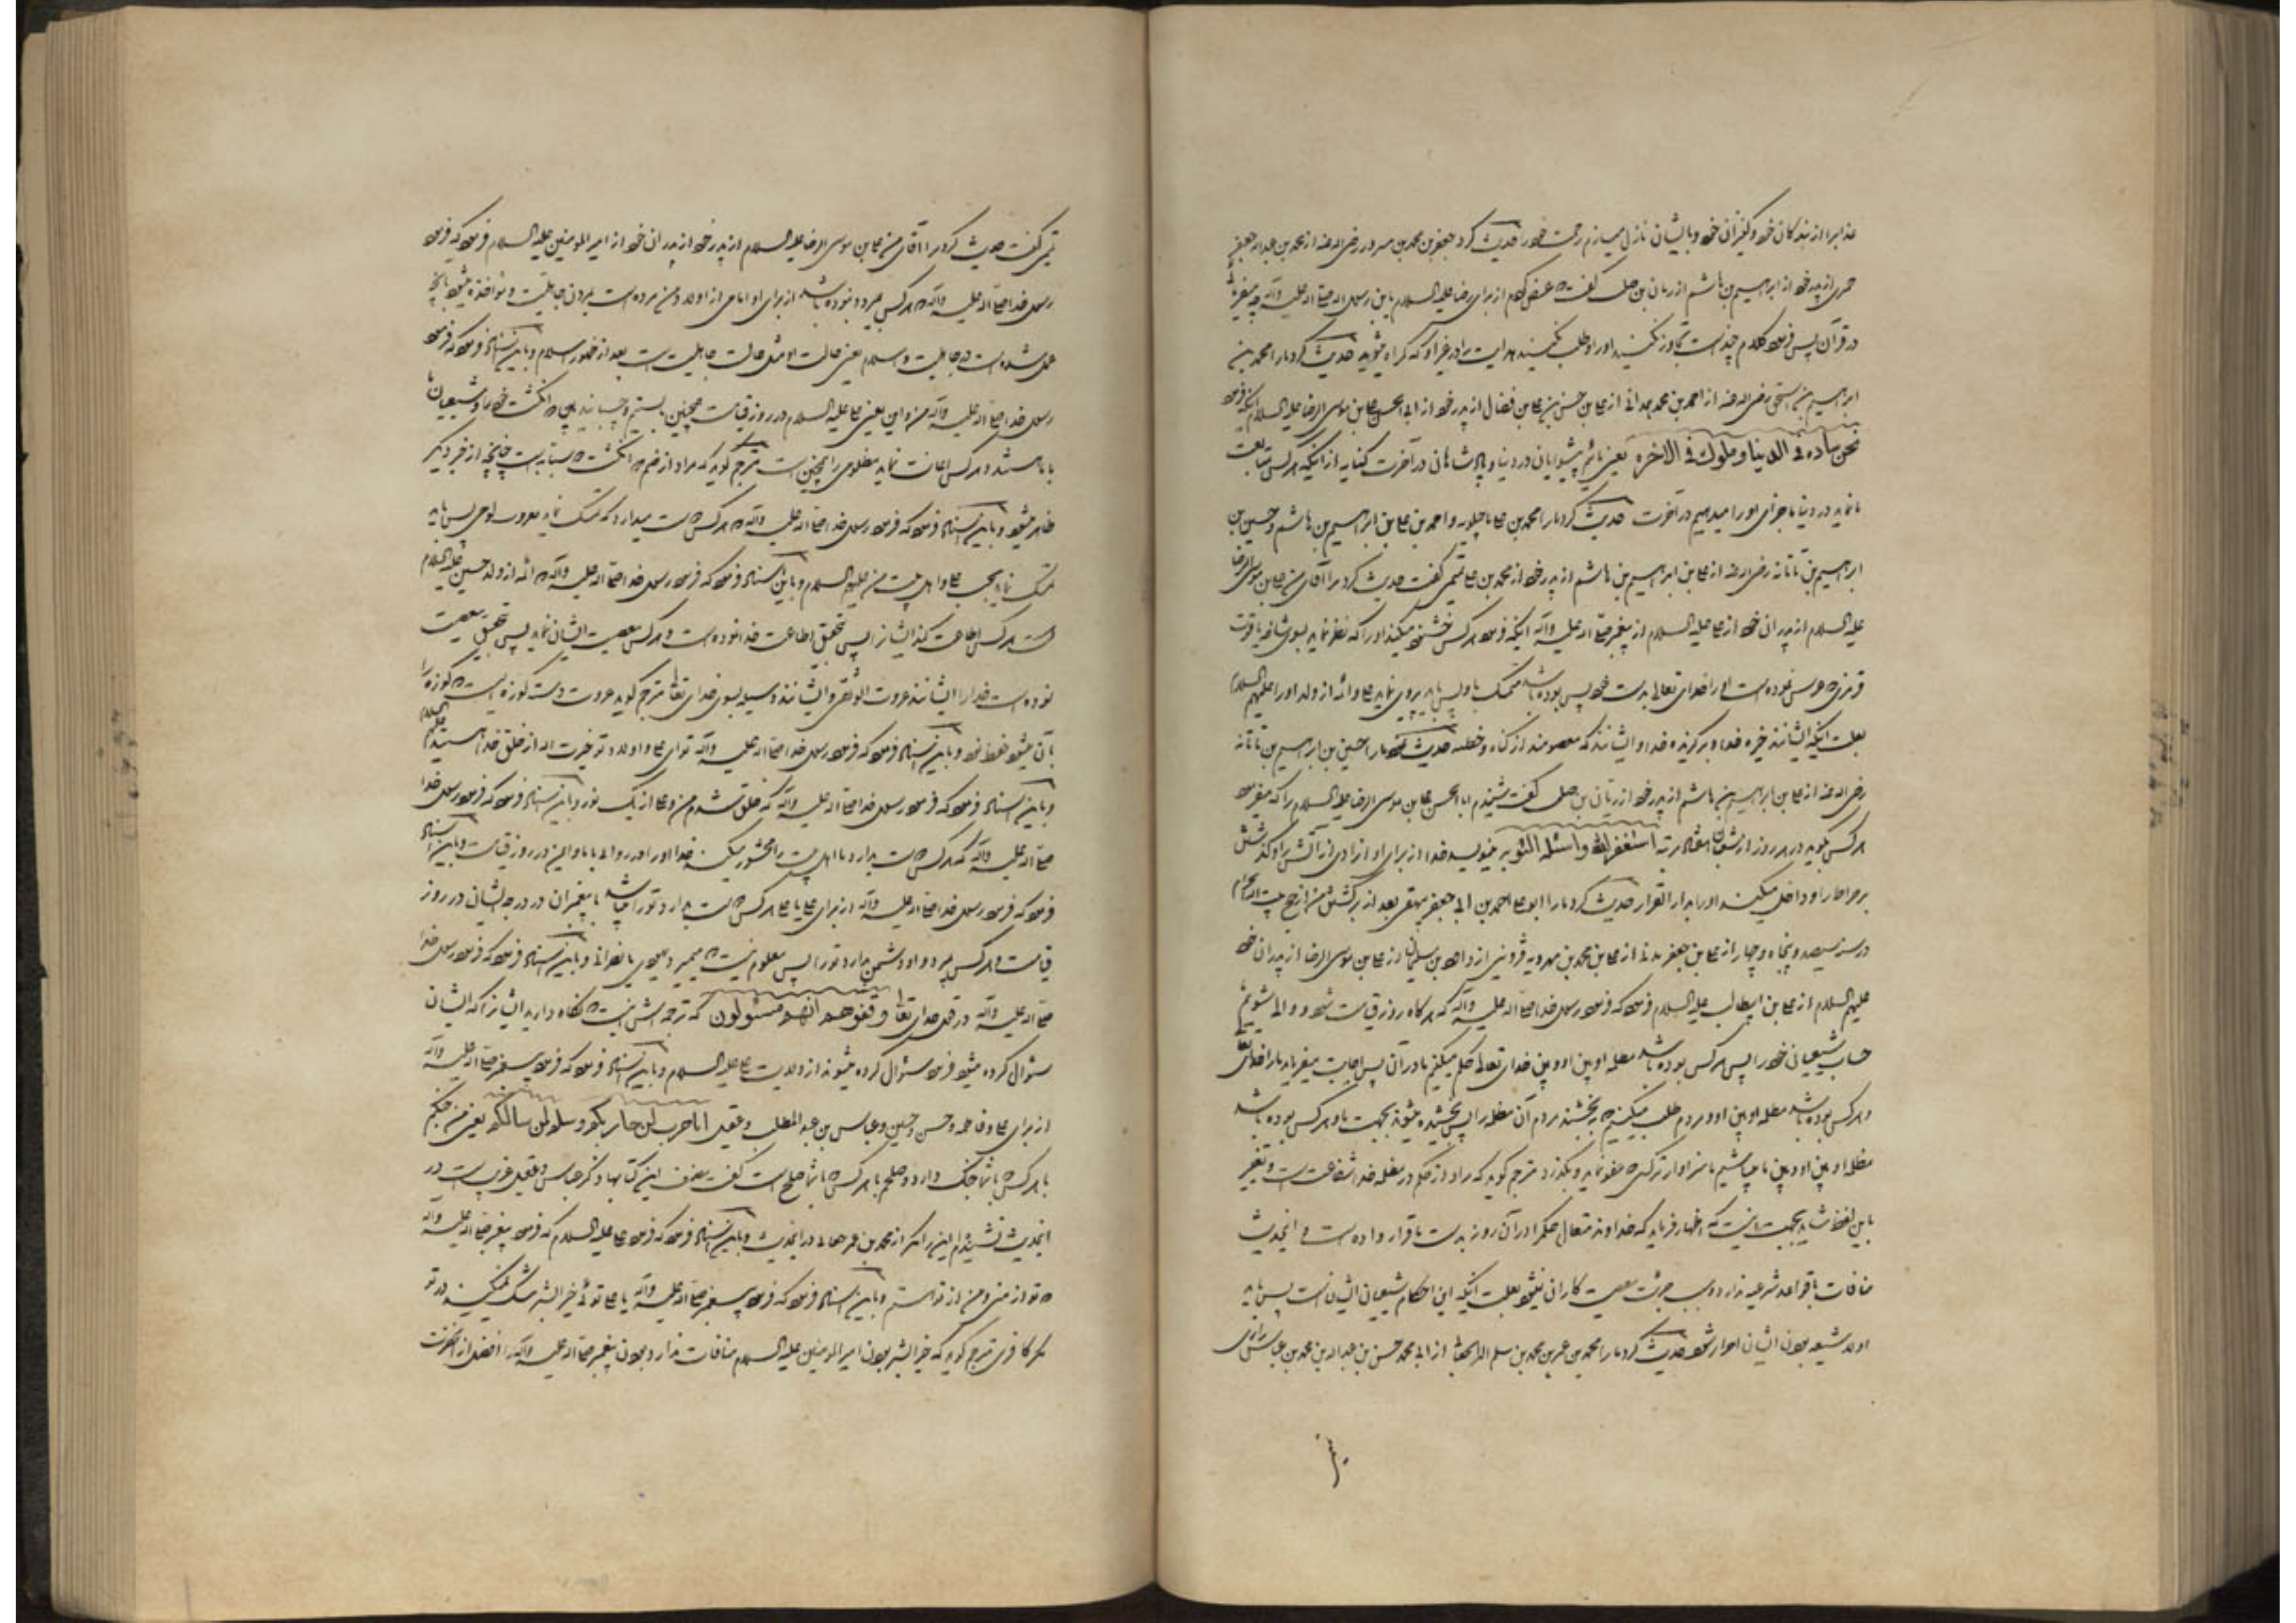 عذابرا از بندکان خود و کنیزان خود و بایشان نازل میسازم رحمت خود را حدیث کرد جعفر بن محمد بن مسرور رضی اله عنه از محمد بن عبداله جعفر
حمیری از پدر خود از ابراهیم بن هاشم از ریان بن صلت گفت که عرض کردم از برای رضا علیه السلام یابن رسول اله صلی اله علیه وآله چه میفرمائی
در قرآن پس فرمود کلام خداست تجاوز نکنید او را و طلب نکنید هدایت را در غیر او که گمراه میشوید حدیث کرد ما را محمد بن
ابراهیم بن اسحق رضی اله عنه از احمد بن محمد همدانی از علی بن حسن بن علی بن فضال از پدر خود از ابی الحسن علی بن موسی الرضا علیه السلام اینکه فرمود
نحن سادة فی الدنیا وملوک فی الاخرة یعنی مائیم پیشوایان در دنیا و پادشاهان در آخرت کنایه از اینکه هرکس متابعت
ما نماید در دنیا ما جزای او را میدهیم در آخرت حدیث کرد ما را محمد بن علی ماجیلویه و احمد بن علی بن ابراهیم بن هاشم و حسین بن
ابراهیم بن تاتانه رضی اله عنه از علی بن ابراهیم بن هاشم از پدر خود از محمد بن علی تمیمی گفت حدیث کرد مرا آقای من علی بن موسی الرضا
علیه السلام از پدران خود از علی علیه السلام از پیغمبر صلی اله علیه وآله اینکه فرمود هرکس خشنود میکند او را که نظر نماید بسوی شاخه یاقوت
قرمزی که غرس نموده است او را خدای تعالی بدست خود پس بوده باشد متمسک باو پس باید پیروی نماید علی و ائمه از ولد او را علیهم السلام
بعلت اینکه ایشانند خیره خدا و برگزیده خدا و ایشانند که معصومند از گناه و خطا حدیث کرد ما را حسین بن ابراهیم بن تاتانه
رضی اله عنه از علی بن ابراهیم بن هاشم از پدر خود از ریان بن صلت گفت شنیدم ابا الحسن علی بن موسی الرضا علیه السلام را که میفرمود
هرکس بگوید در هر روز از شعبان هفتاد مرتبه استغفر الله واسئله التوبه مینویسد خدا از برای او آزادی از آتش را و گذشتن
بر صراط را و داخل میکند او را بدار القرار حدیث کرد ما را ابو علی احمد بن ابی جعفر بیهقی بعد از برگشتن من از حج بیت اله الحرام
در سنه سیصد و پنجاه و چهار از علی بن جعفر مدنی از علی بن محمد بن مهرویه قزوینی از داود بن سلیمان از علی بن موسی الرضا از پدران خود
علیهم السلام از علی بن ابیطالب علیه السلام فرمود که فرمود رسول خدا صلی اله علیه وآله که هرگاه روز قیامت شود و والی میشویم
حساب شیعیان خود را پس هرکس بوده باشد مظلمه او بین او و بین خدای تعالی حکم میکنیم ما در آن پس اجابت میفرماید ما را خدای تعالی
و هرکس بوده باشد مظلمه او بین او و مردم طلب میکنیم که بخشند مردم آن مظلمه را پس بخشیده میشود بجهت ما و هرکس بوده باشد
مظلمه او بین او و بین ما میباشیم ما سزاوارتر کسی که عفو نماید و بگذرد مترجم گوید که مراد از حکم در مظلمه خدا شفاعت است و تعبیر
باین لفظ شاید بجهت اینست که اظهار فرماید که خداوند متعال حکم را در آن روز بدست ما قرار داده است و این حدیث
منافات با قواعد شرعیه ندارد و سبب جرئت معصیت کاران نمیشود بعلت اینکه این احکام شیعیان ایشان است پس باید
اولا شیعه بودن ایشان احراز شود حدیث کرد ما را محمد بن عمر بن محمد بن سلم البراء الجعابی از ابی محمد حسن بن عبداله بن محمد بن عباس رازی
تمیمی گفت حدیث کرد مرا آقای من علی بن موسی الرضا علیه السلام از پدر خود از پدران خود از امیر المومنین علیه السلام فرمود که فرمود
رسول خدا صلی اله علیه وآله که هرکس بمیرد و نبوده باشد از برای او امامی از اولاد من مرده است بمردن جاهلیت و مواخذه میشود بانچه
عمل شده است در جاهلیت و اسلام یعنی حالت او مثل حالت جاهلیت است بعد از ظهور اسلام و باین اسناد فرمود که فرمود
رسول خدا صلی اله علیه وآله من و این یعنی علی علیه السلام در روز قیامت همچنین باشیم و چسبانید میان دو انگشت خود را و شیعیان ما
با ما هستند و هرکس اعانت نماید مظلومی را همچنین است مترجم گوید که مراد از ضم دو انگشت سبابه است چنانچه از خبر دیگر
ظاهر میشود و باین اسناد فرمود که فرمود رسول خدا صلی اله علیه وآله که هرکس دوست میدارد که تمسک نماید بعروت الوثقی پس باید
تمسک نماید بحب علی و اهل بیت من علیهم السلام و باین اسناد فرمود که فرمود رسول خدا صلی اله علیه وآله که ائمه از ولد حسین علیه السلام
است هرکس اطاعت کند ایشانرا پس تحقیق اطاعت خدا نموده است و هرکس معصیت ایشان نماید پس تحقیق معصیت
نموده است خدا را ایشانند عروت الوثقی و ایشانند وسیله بسوی خدای تعالی مترجم گوید عروت دسته کوزه است که کوزه را
بآن میشود حفظ نمود و باین اسناد فرمود که فرمود رسول خدا صلی اله علیه وآله تو ای علی و اولاد تو خیرت اله از خلق خدا هستید علیهم السلام
و باین اسناد فرمود که فرمود رسول خدا صلی اله علیه وآله که خلق شدم من و علی از یک نور و باین اسناد فرمود که فرمود رسول خدا
صلی اله علیه وآله که هرکس دوست بدارد ما اهل بیت را محشور میکند خدا او را در روز قیامت با ما و این در روز قیامت و باین اسناد
فرمود که فرمود رسول خدا صلی اله علیه وآله از برای علی یا علی هرکس دوست بدارد تو را میباشد با پیغمبران در درجه ایشان در روز
قیامت و هرکس بمیرد و او دشمن بدارد تو را پس معلوم نیست که میمیرد یهودی یا نصرانی و باین اسناد فرمود که فرمود رسول خدا
صلی اله علیه وآله در قول خدای تعالی وقفوهم انهم مسئولون که ترجمه اش اینست که نگاه دارید ایشانرا که ایشان
سئوال کرده میشود فرمود سئوال کرده میشوند از ولایت علی علیه السلام و باین اسناد فرمود که فرمود پیغمبر صلی اله علیه وآله
از برای علی و فاطمه و حسن و حسین و عباس بن عبد المطلب و عقیل انا حرب لمن حاربکم وسلم لمن سالمکم یعنی من جنگم
با هرکس که با شما جنگ دارد و صلحم با هرکس که با شما صلح است گفت مصنف این کتابها ذکر عباس و عقیل غریب است در
این حدیث نشنیدم این را مگر از محمد بن عمر جعابی در این حدیث و باین اسناد فرمود که فرمود علی علیه السلام که فرمود پیغمبر صلی اله علیه وآله
که تو از منی و من از تو استم و باین اسناد فرمود که فرمود پیغمبر صلی اله علیه وآله یا علی توئی خیر البشر شک نمیکند در تو
مگر کافر مترجم گوید که خیر البشر بودن امیر المومنین علیه السلام منافات ندارد بودن پیغمبر صلی اله علیه وآله را افضل از آنحضرت